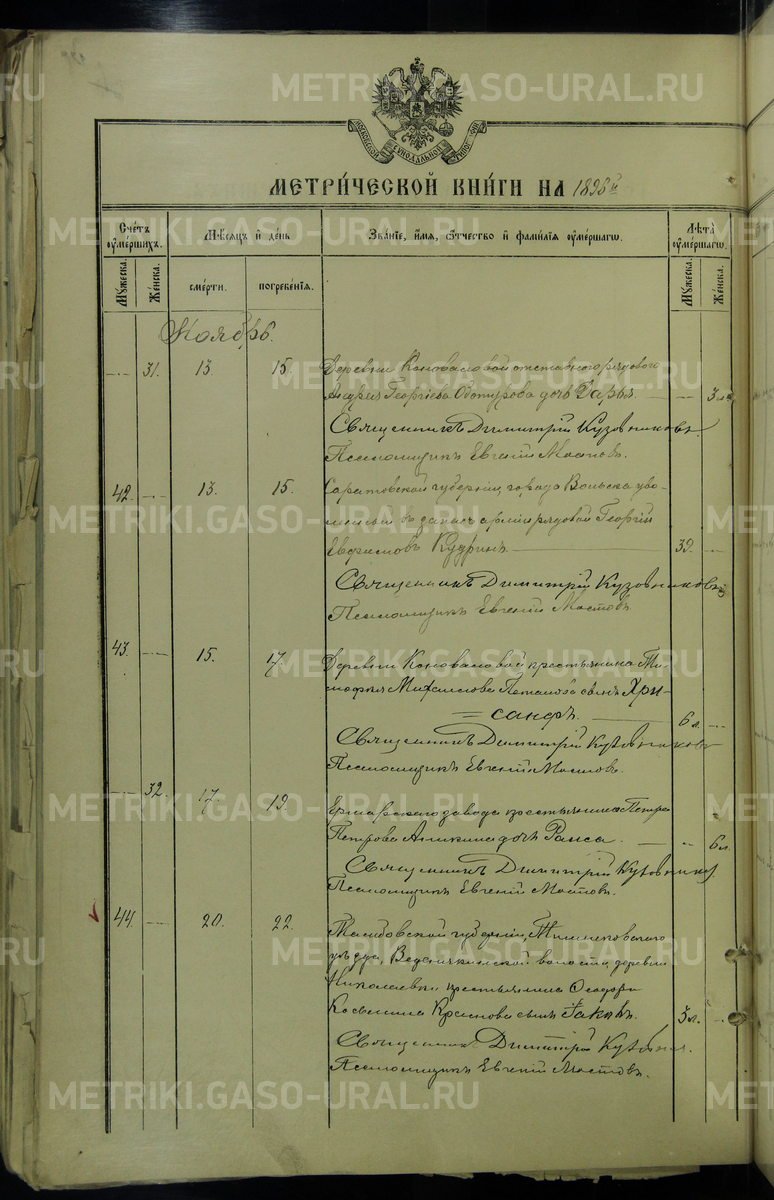 МОСКОВСКОЙ СѴНОДАЛЬНОЙ ТИПОГРАФІИ
МЕТРИ́ЧЕСКОЙ КНИ́ГИ НА 189
Сче́тъ ѹме́ршихъ.
Мѣ́сяцъ и де́нь
Зва́нїе, и́мя, ѻ́тчество и фами́лїя ѹме́ршагѡ.
Лѣ́та ѹме́ршагѡ.
Мꙋ́жеска. Же́нска. сме́рти. погребе́нїя. Мꙋ́жеска. Же́нска.
Ноябрь.
31. 13. 15. Деревни Коноваловой отставного рядового
Андрея Георгіева дочь Дарья
Священникъ Димитрій Кузовниковъ
Псаломщикъ Евгеній Мостовъ.
42. 13. 15. Саратовской губерніи, города Вольска уво-
ленный въ запасъ арміи рядовой Георгій
Ефимовъ Кудринъ 39.
Священникъ Димитрій Кузовниковъ
Псаломщикъ Евгеній Мостовъ
43. 15. 17. Деревни Коноваловой крестьянина Ти-
мофея Михаилова Потапова сынъ Хри-
санфъ. 6 л.
Священникъ Димитрій Кузовниковъ
Псаломщикъ Евгеній Мостовъ.
32. 17. 19. завода крестьянина Петра
Петрова Аникина дочь Раиса. 6 л.
Священникъ Димитрій
Псаломщикъ Евгеній Мостовъ.
44. 20. 22. Тамбовской губерніи,
уѣзда, волости, деревни
Николаевки крестьянина Ѳеодора
Краснова сынъ Іаковъ. 3 л.
Священникъ Димитрій
Псаломщикъ Евгеній Мостовъ.
METRIKI.GASO-URAL.RU